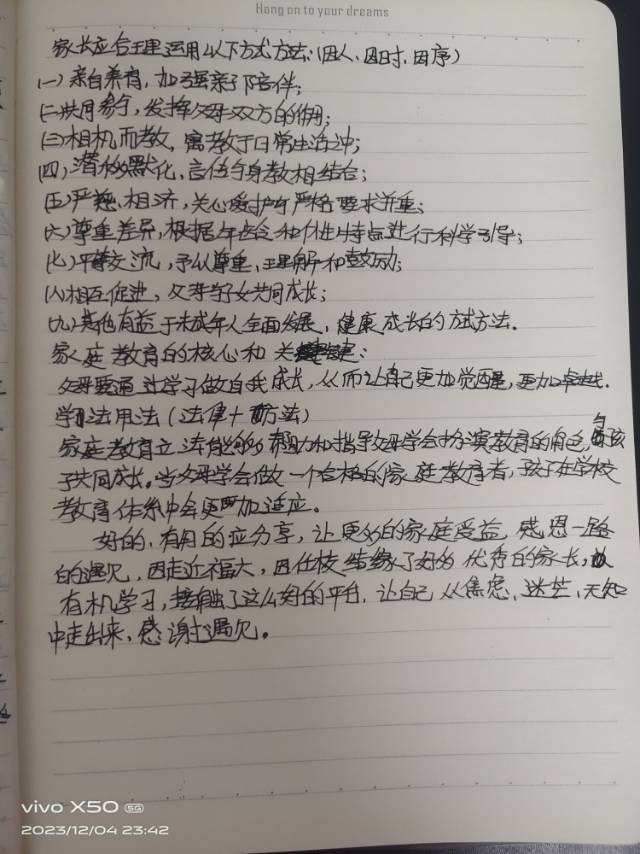 Hang on to your dreams
家长应合理运用以下方式方法:(因人、因时、因序)
(一)亲自养育,加强亲子陪伴;
(二)共同参与,发挥父母双方的作用;
(三)相机而教,寓教于日常生活之中;
(四)潜移默化,言传与身教相结合;
(五)严慈相济,关心爱护与严格要求并重;
(六)尊重差异,根据年龄和个性特点进行科学引导;
(七)平等交流,予以尊重、理解和鼓励;
(八)相互促进,父母与子女共同成长;
(九)其他有益于未成年人全面发展、健康成长的方式方法.
家庭教育的核心和关键:
父母要通过学习做自我成长,从而让自己更加觉醒,更加卓越.
学习法用法(法律+方法)
家庭教育立法能够帮助和指导父母学会扮演教育的角色,与孩
子共同成长。当父母学会做一个合格的家庭教育者,孩子在学校
教育体系中会更加适应。
好的、有用的应分享,让更多的家庭受益,感恩一路
的遇见,因走近福大,因在校结缘了好多优秀的家长,
有机学习,接触了这么好的平台,让自己从焦虑、迷茫、无知
中走出来,感谢遇见。
vivo X50 5G
2023/12/04 23:42